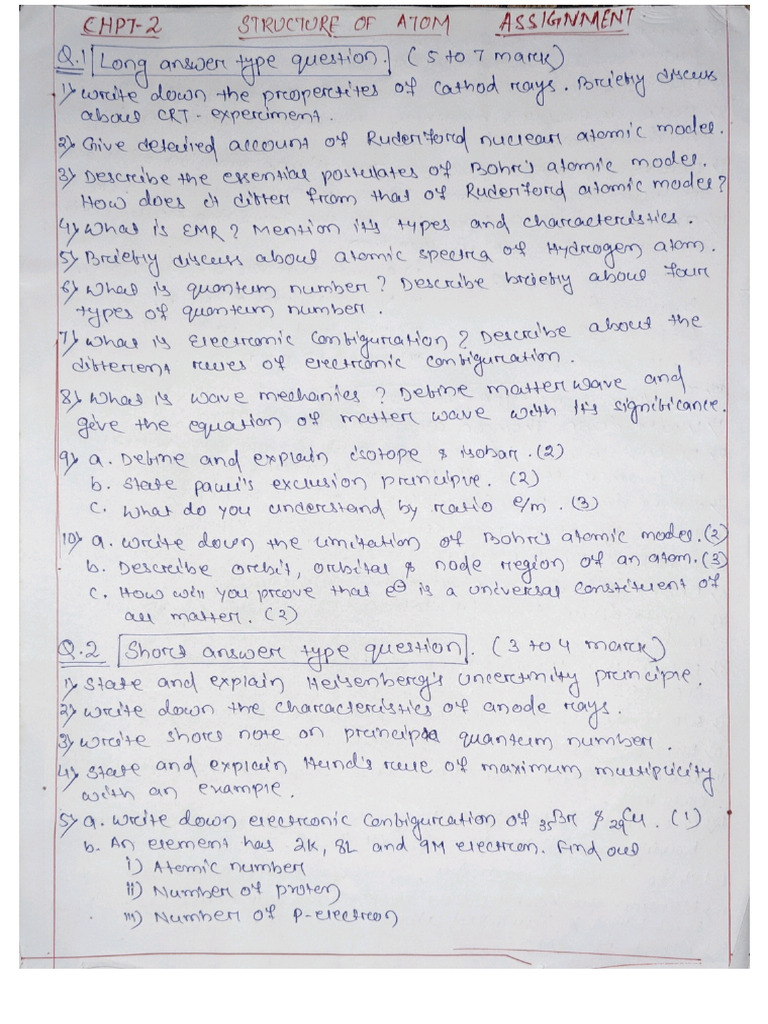 CHPT-2 STRUCTURE OF ATOM ASSIGNMENT
Q.1 Long answer type question. (5 to 7 marck)
1) Write down the propertites of Cathod rays. Briefly discuss
about CRT-experiment.
2) Give detailed account of Ruderford nuclear atomic model.
3) Describe the essential postulates of Bohr's atomic model.
How does it differ from that of Ruderford atomic model?
4) What is EMR? Mention its types and characteristics.
5) Briefly discuss about atomic spectra of Hydrogen atom.
6) What is quantum number? Describe briefly about four
types of quantum number.
7) What is Electronic Configuration? Describe about the
different rules of electronic configuration.
8) What is wave mechanics? Define matter wave and
give the equation of matter wave with it's significance.
9) a. Define and explain isotope & isobar. (2)
b. State pauli's exclusion principle. (2)
c. What do you understand by ratio e/m. (3)
10) a. Write down the limitation of Bohr's atomic model. (2)
b. Describe orbit, orbital & node region of an atom. (3)
c. How will you prove that e⊖ is a universal constituent of
all matter. (2)
Q.2 Short answer type question. (3 to 4 marck)
1) State and explain Heisenberg's uncertinity principle.
2) Write down the characteristics of anode rays.
3) Write short note on principle quantum number.
4) State and explain Hund's rule of maximum multiplicity
with an example.
5) a. Write down electronic configuration of ₃₅Br & ₂₉Cu. (1)
b. An element has 2K, 8L and 9M electron. Find out
i) Atomic number
ii) Number of proton
iii) Number of P-electron